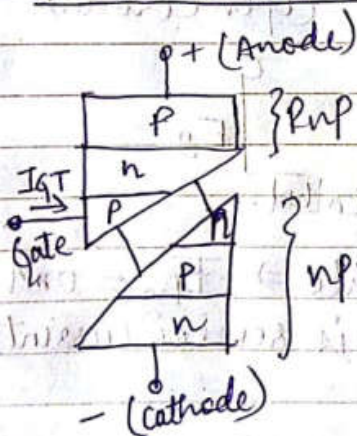 + (Anode)
P
} PnP
n
IGT
P
Gate
n
P
} nP
n
- (Cathode)